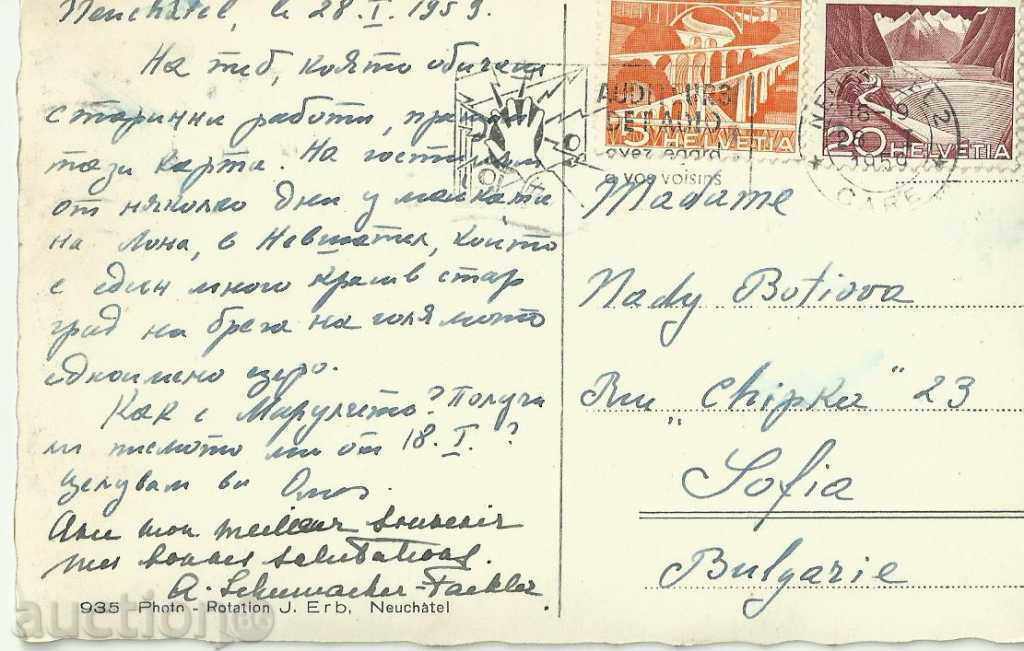 Neuchâtel, le 28.I.1959.
На теб, която обичаш
старинни работи, пращам
тази карта. На гости съм
от няколко дни у майката
на Лона, в Невшател, който
е един много красив стар
град на брега на голямото
едноименно езеро.
Как е Марулчето? Получи
ли писмото ми от 18.I.?
Целувам ви
Avec mon meilleur souvenir
mes bonnes salutations.
A. Schumacker-Fackler
935 Photo - Rotation J. Erb, Neuchâtel
5 HELVETIA
20 HELVETIA
AUDITEURS
DE LA RADIO
ayez égard
à vos voisins
NEUCHATEL 2
28 I
1959
Madame
Nady Botiova
Rue „Chipka" 23
Sofia
Bulgarie
auction.bg